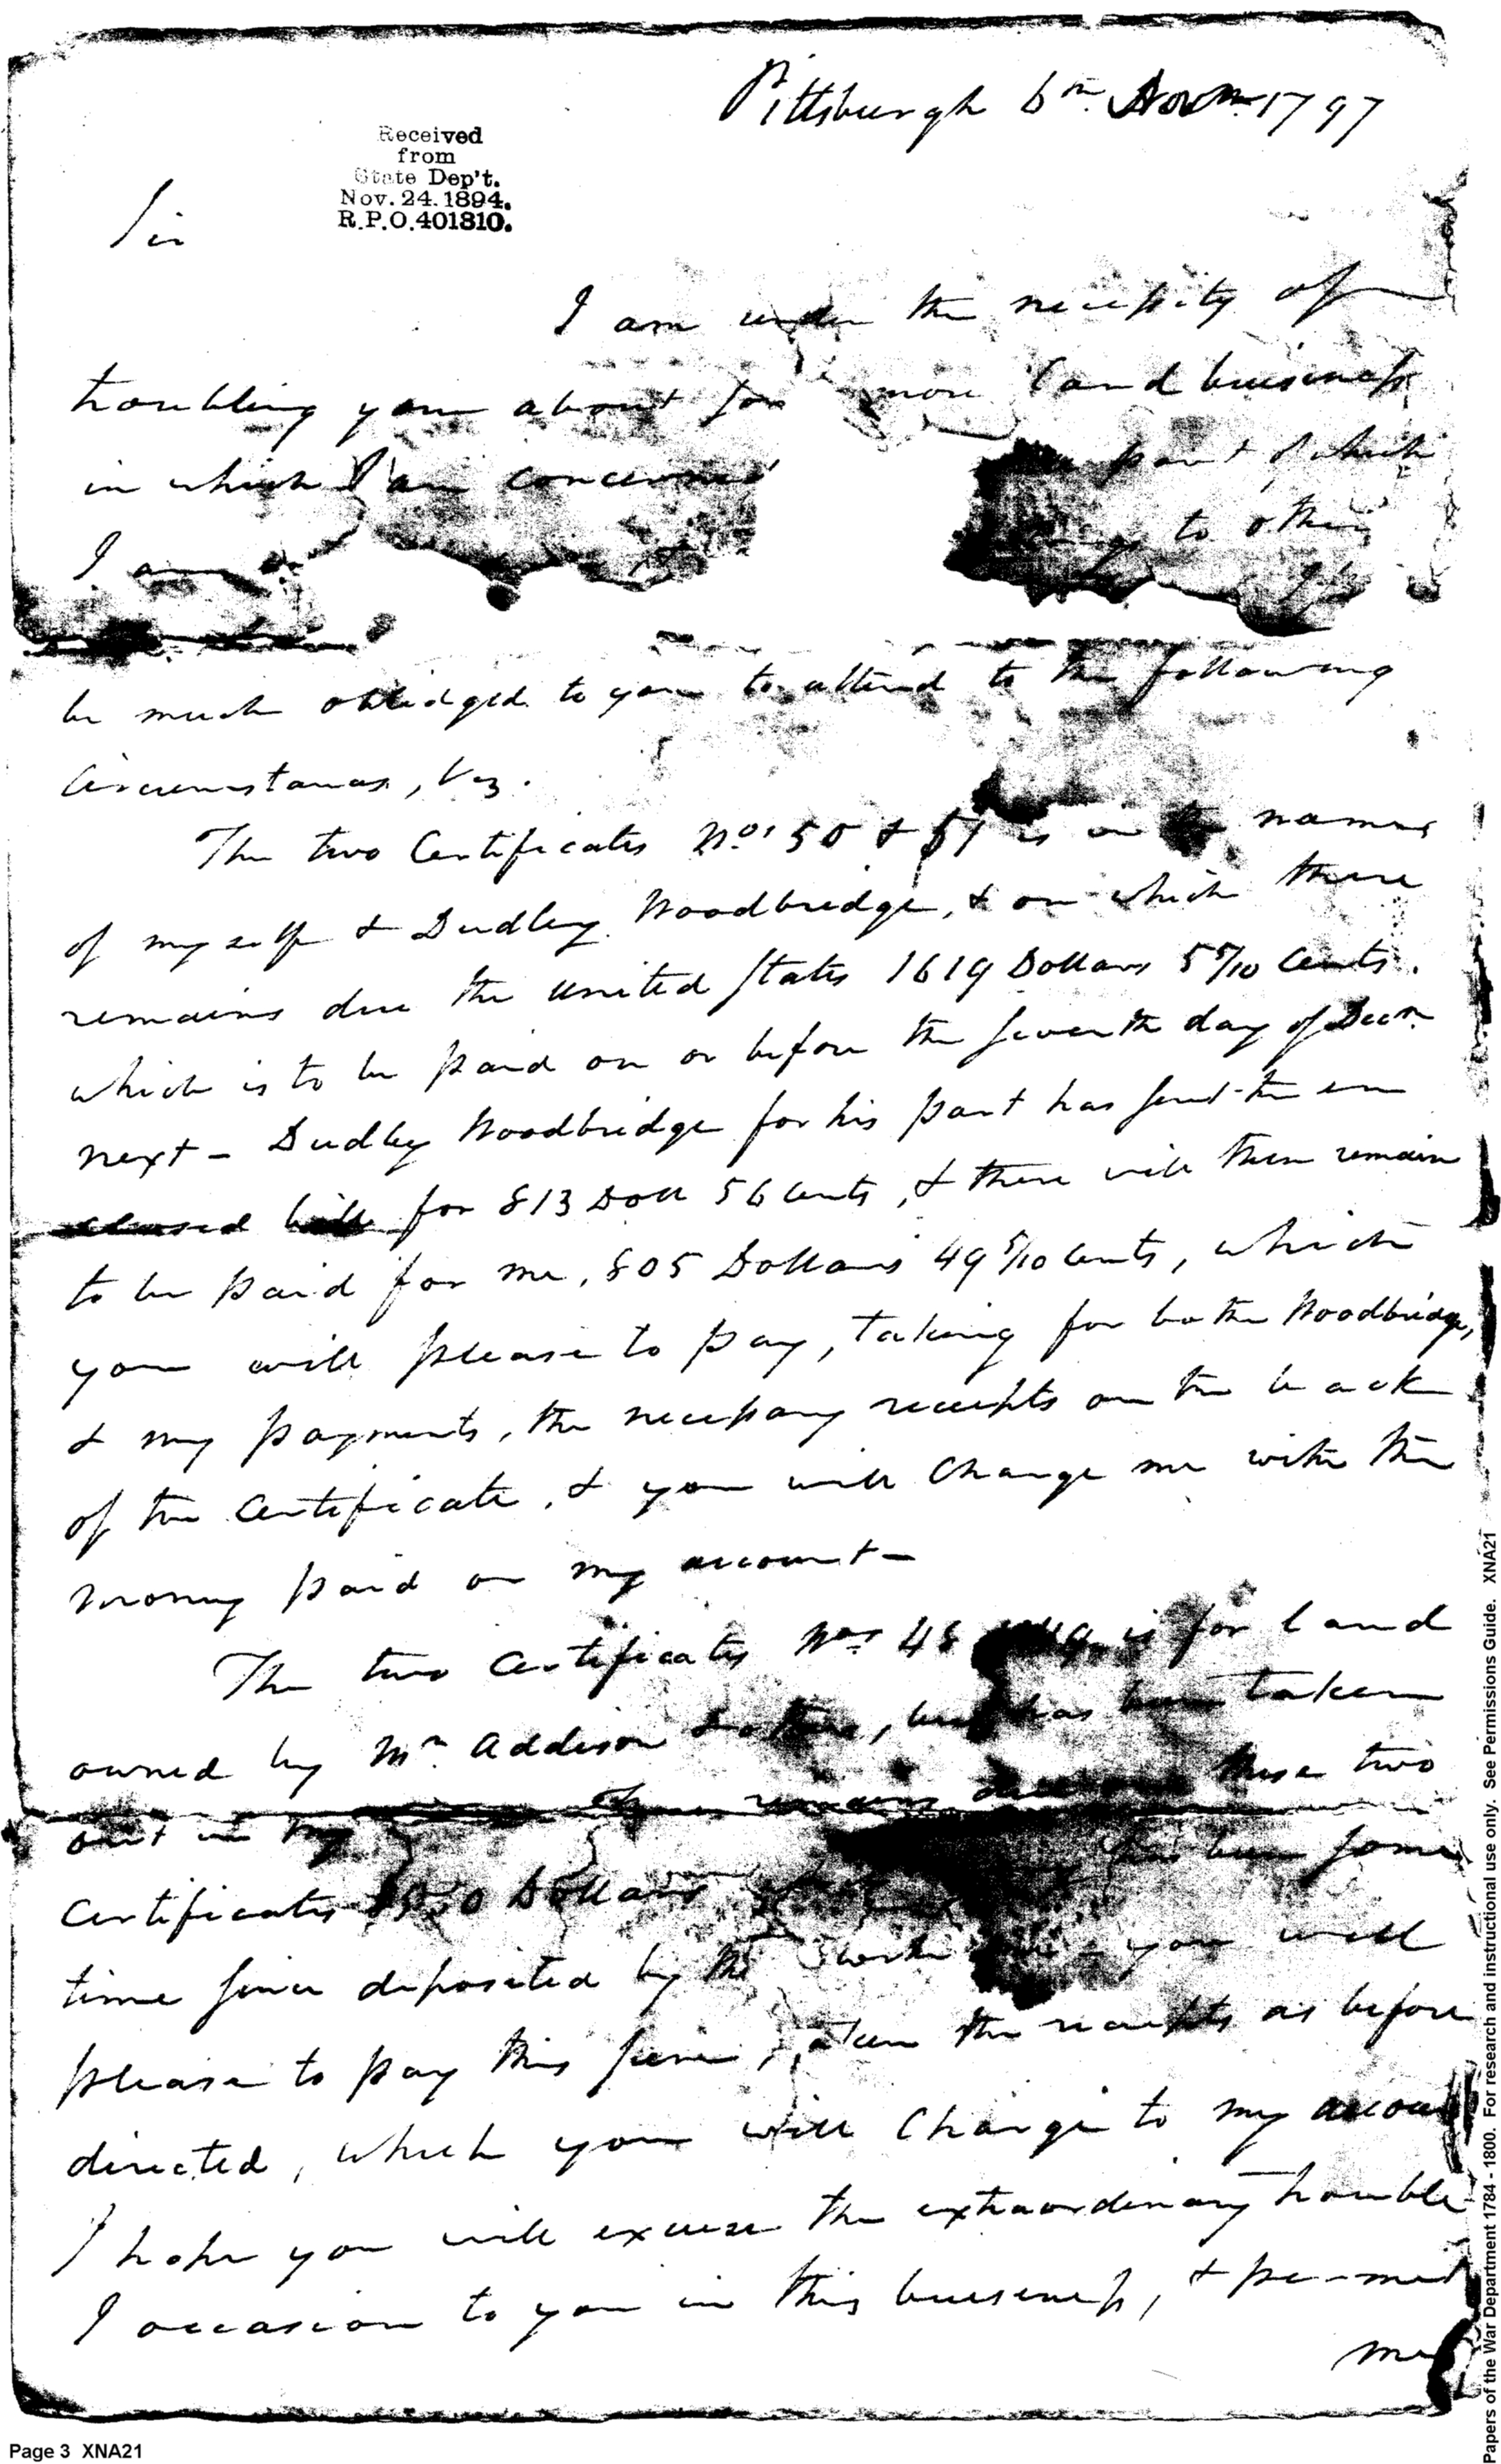 Pittsburgh 6th Novm 1797
Received
from
State Dep't.
Nov. 24. 1894.
R.P.O. 401310.
Sir
I am under the necessity of
troubling you about some more land buisiness
in which I am concerned part of which
I am to other
be much oblidged to you to attend to the following
Circumstances, Viz.
The two Certificates Nos 50 & 51 is in the names
of my self & Dudley Woodbridge, & on which there
remains due the United States 1619 Dollars 5 5/10 Cents.
which is to be paid on or before the seventh day of Decr.
next - Dudley Woodbridge for his part has sent the en
closed bill for 813 Doll 56 Cents, & there will then remain
to be paid for me, 805 Dollars 49 5/10 Cents, which
you will please to pay, taking for both Woodbridge,
& my payments, the necessary receipts on the back
of the Certificate, & you will Charge me with the
money paid on my account -
The two Certificates Nos 48 & 49 is for land
owned by Mr. Addison & others, but has been taken
out in my There remains due on these two
Certificates Dollars has been some
time since deposited by the you will
please to pay this sum, taken the receipts as before
directed, which you will Charge to my account
I hope you will excuse the extraordinary trouble
I occasion to you in this buiseness, & permit
me
Page 3 XNA21
Papers of the War Department 1784 - 1800. For research and instructional use only. See Permissions Guide. XNA21